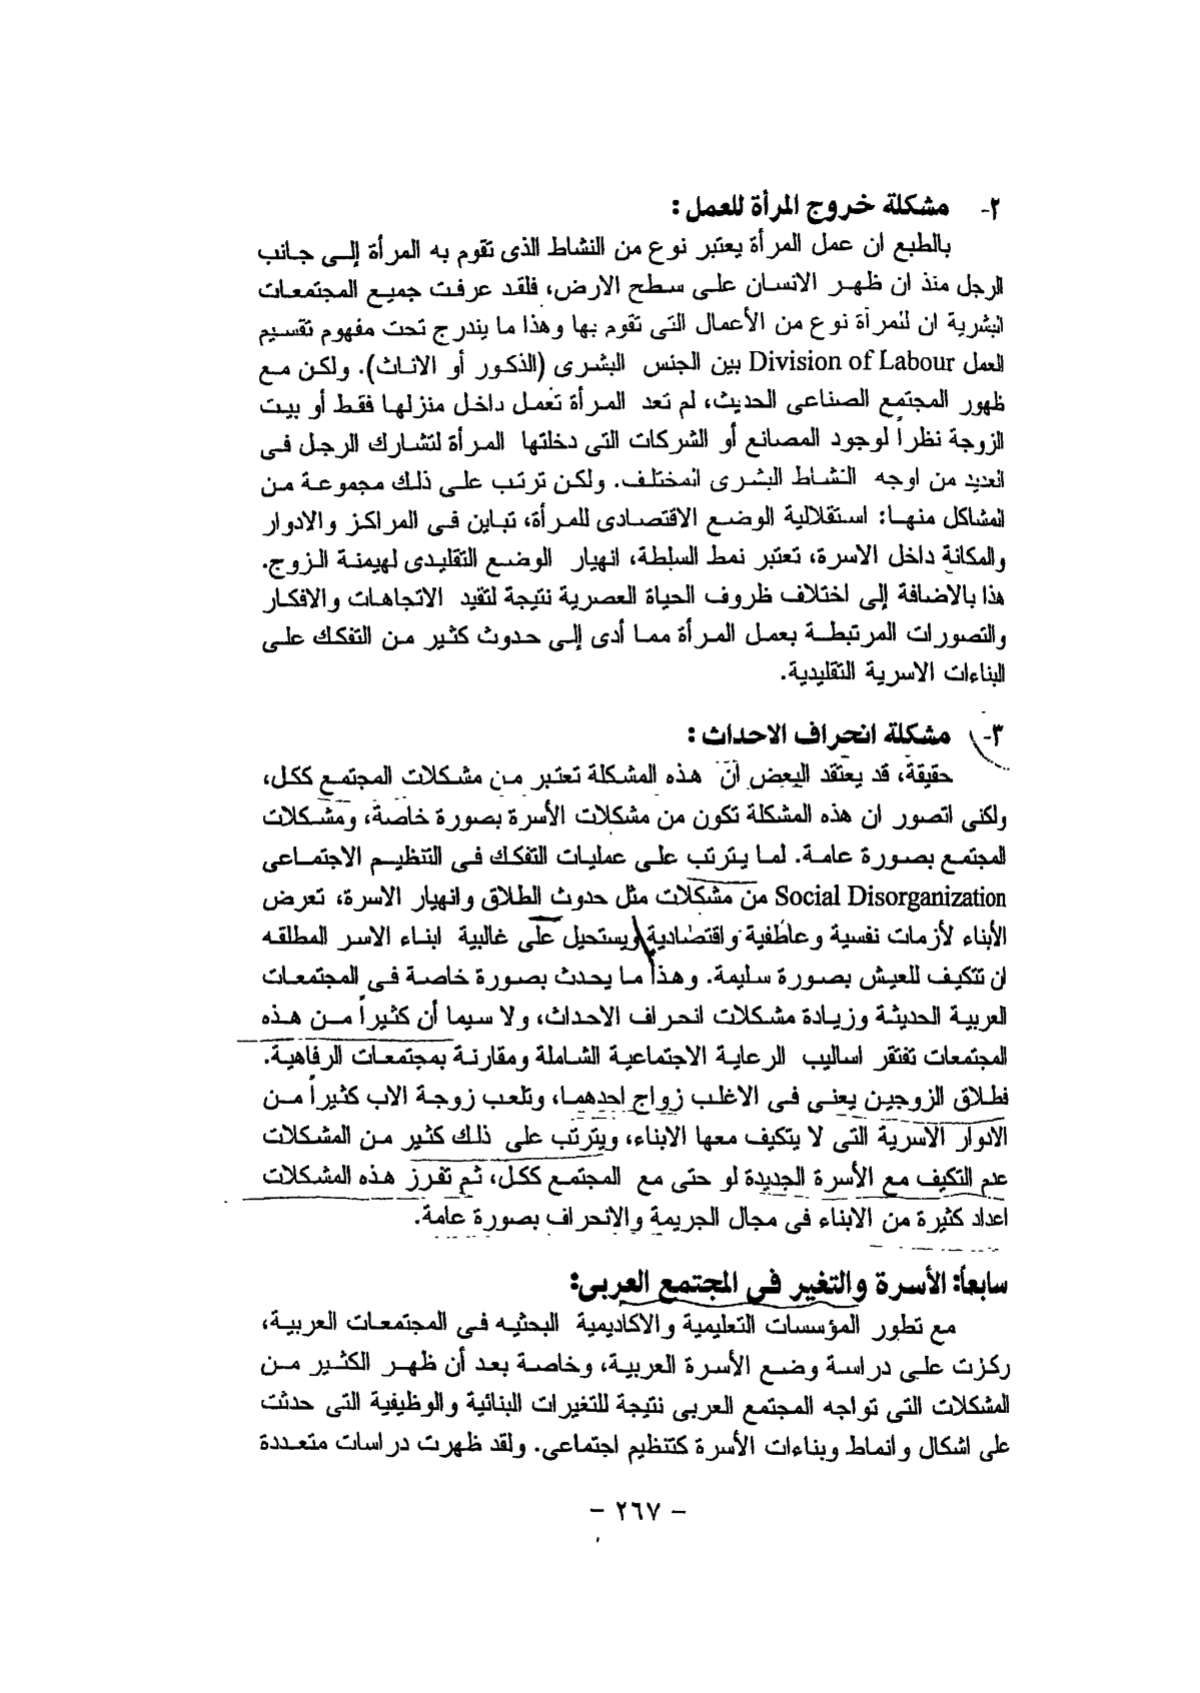 ٢- مشكلة خروج المرأة للعمل :
بالطبع ان عمل المرأة يعتبر نوع من النشاط الذى تقوم به المرأة إلى جانب
الرجل منذ ان ظهر الانسان على سطح الارض، فلقد عرفت جميع المجتمعات
البشرية ان للمرأة نوع من الأعمال التى تقوم بها وهذا ما يندرج تحت مفهوم تقسيم
العمل Division of Labour بين الجنس البشرى (الذكور أو الاناث). ولكن مع
ظهور المجتمع الصناعى الحديث، لم تعد المرأة تعمل داخل منزلها فقط أو بيت
الزوجة نظراً لوجود المصانع أو الشركات التى دخلتها المرأة لتشارك الرجل فى
العديد من اوجه النشاط البشرى المختلف. ولكن ترتب على ذلك مجموعة من
المشاكل منها: استقلالية الوضع الاقتصادى للمرأة، تباين فى المراكز والادوار
والمكانة داخل الاسرة، تعتبر نمط السلطة، انهيار الوضع التقليدى لهيمنة الزوج.
هذا بالاضافة إلى اختلاف ظروف الحياة العصرية نتيجة لتقيد الاتجاهات والافكار
والتصورات المرتبطة بعمل المرأة مما أدى إلى حدوث كثير من التفكك على
البناءات الاسرية التقليدية.
٣- مشكلة انحراف الاحداث :
حقيقة، قد يعتقد البعض أن هذه المشكلة تعتبر من مشكلات المجتمع ككل،
ولكنى اتصور ان هذه المشكلة تكون من مشكلات الأسرة بصورة خاصة، ومشكلات
المجتمع بصورة عامة. لما يترتب على عمليات التفكك فى التنظيم الاجتماعى
Social Disorganization من مشكلات مثل حدوث الطلاق وانهيار الاسرة، تعرض
الأبناء لأزمات نفسية وعاطفية واقتصادية ويستحيل على غالبية ابناء الاسر المطلقه
ان تتكيف للعيش بصورة سليمة. وهذا ما يحدث بصورة خاصة فى المجتمعات
العربية الحديثة وزيادة مشكلات انحراف الاحداث، ولا سيما أن كثيراً من هذه
المجتمعات تفتقر اساليب الرعاية الاجتماعية الشاملة ومقارنة بمجتمعات الرفاهية.
فطلاق الزوجين يعنى فى الاغلب زواج احدهما، وتلعب زوجة الاب كثيراً من
الادوار الاسرية التى لا يتكيف معها الابناء، ويترتب على ذلك كثير من المشكلات
عدم التكيف مع الأسرة الجديدة لو حتى مع المجتمع ككل، ثم تفرز هذه المشكلات
اعداد كثيرة من الابناء فى مجال الجريمة والانحراف بصورة عامة.
سابعاً: الأسرة والتغير في المجتمع العربى:
مع تطور المؤسسات التعليمية والاكاديمية البحثيه فى المجتمعات العربية،
ركزت على دراسة وضع الأسرة العربية، وخاصة بعد أن ظهر الكثير من
المشكلات التى تواجه المجتمع العربى نتيجة للتغيرات البنائية والوظيفية التى حدثت
على اشكال وانماط وبناءات الأسرة كتنظيم اجتماعى. ولقد ظهرت دراسات متعددة
- ٢٦٧ -